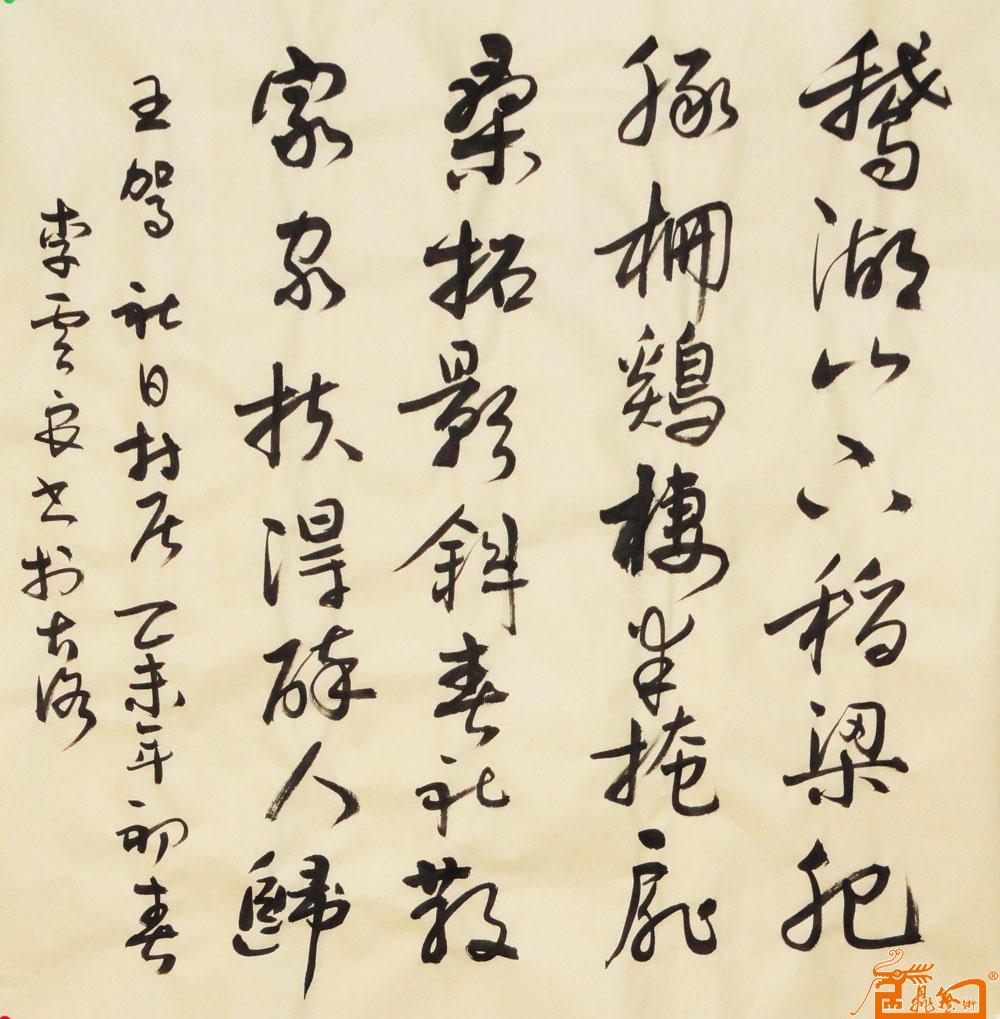 鹅湖山下稻梁肥
豚栅鷄棲半掩扉
桑拓影斜春社散
家家扶得醉人歸
王驾 社日村居 乙未年初春
李雲良书於古洛